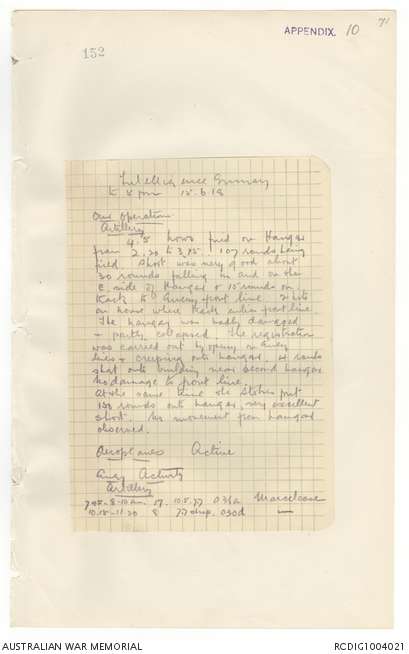 71
APPENDIX. 10
152
Intelligence Summary
to 8 pm 15.6.18
Our Operation
Artillery
4.5 hows fired on Hangar
from 2.30 to 3.15. 107 rounds being
fired. Shoot was very good about
30 rounds falling in and on the
E side of Hangar & 15 rounds on
track to Enemy front line. 2 hits
on house where track enters front line.
The hangar was badly damaged
& partly collapsed. The registration
was carried out by opening on Enemy
lines & creeping onto hangar. 4 rounds
shot onto building near second hangar
No damage to front line.
At the same time the Stokes put
150 rounds onto hangar, very excellent
shoot. No movement from hangars
observed.
Aeroplanes Active
Enemy Activity
Artillery
8-10 am 17 10.5
10.15-11.20 8
AUSTRALIAN WAR MEMORIAL
RCDIG1004021